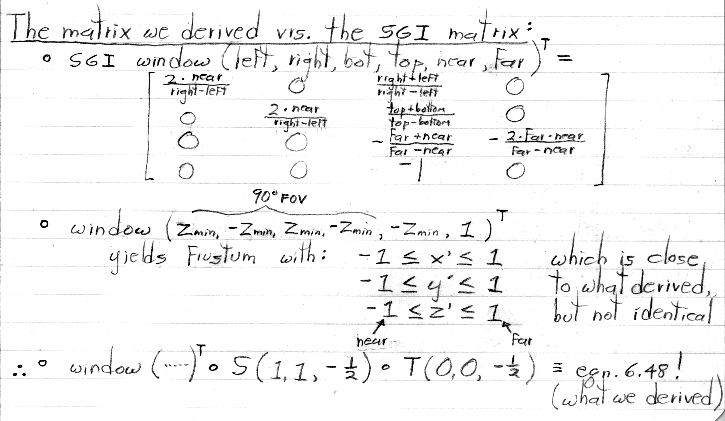 The matrix we derived vis. the SGI matrix:
• SGI window (left, right, bot, top, near, far)ᵀ =
2·near/right-left 0 right+left/right-left 0
0 2·near/right-left top+bottom/top-bottom 0
0 0 -far+near/far-near -2·far·near/far-near
0 0 -1 0
90° FOV
• window (Zmin, -Zmin, Zmin, -Zmin, -Zmin, 1)ᵀ
yields Frustum with: -1 ≤ x' ≤ 1 which is close
-1 ≤ y' ≤ 1 to what derived,
-1 ≤ z' ≤ 1 but not identical
near far
∴ • window (·····)ᵀ • S(1,1,-½) • T(0,0,-½) ≡ eqn. 6.48!
(what we derived)